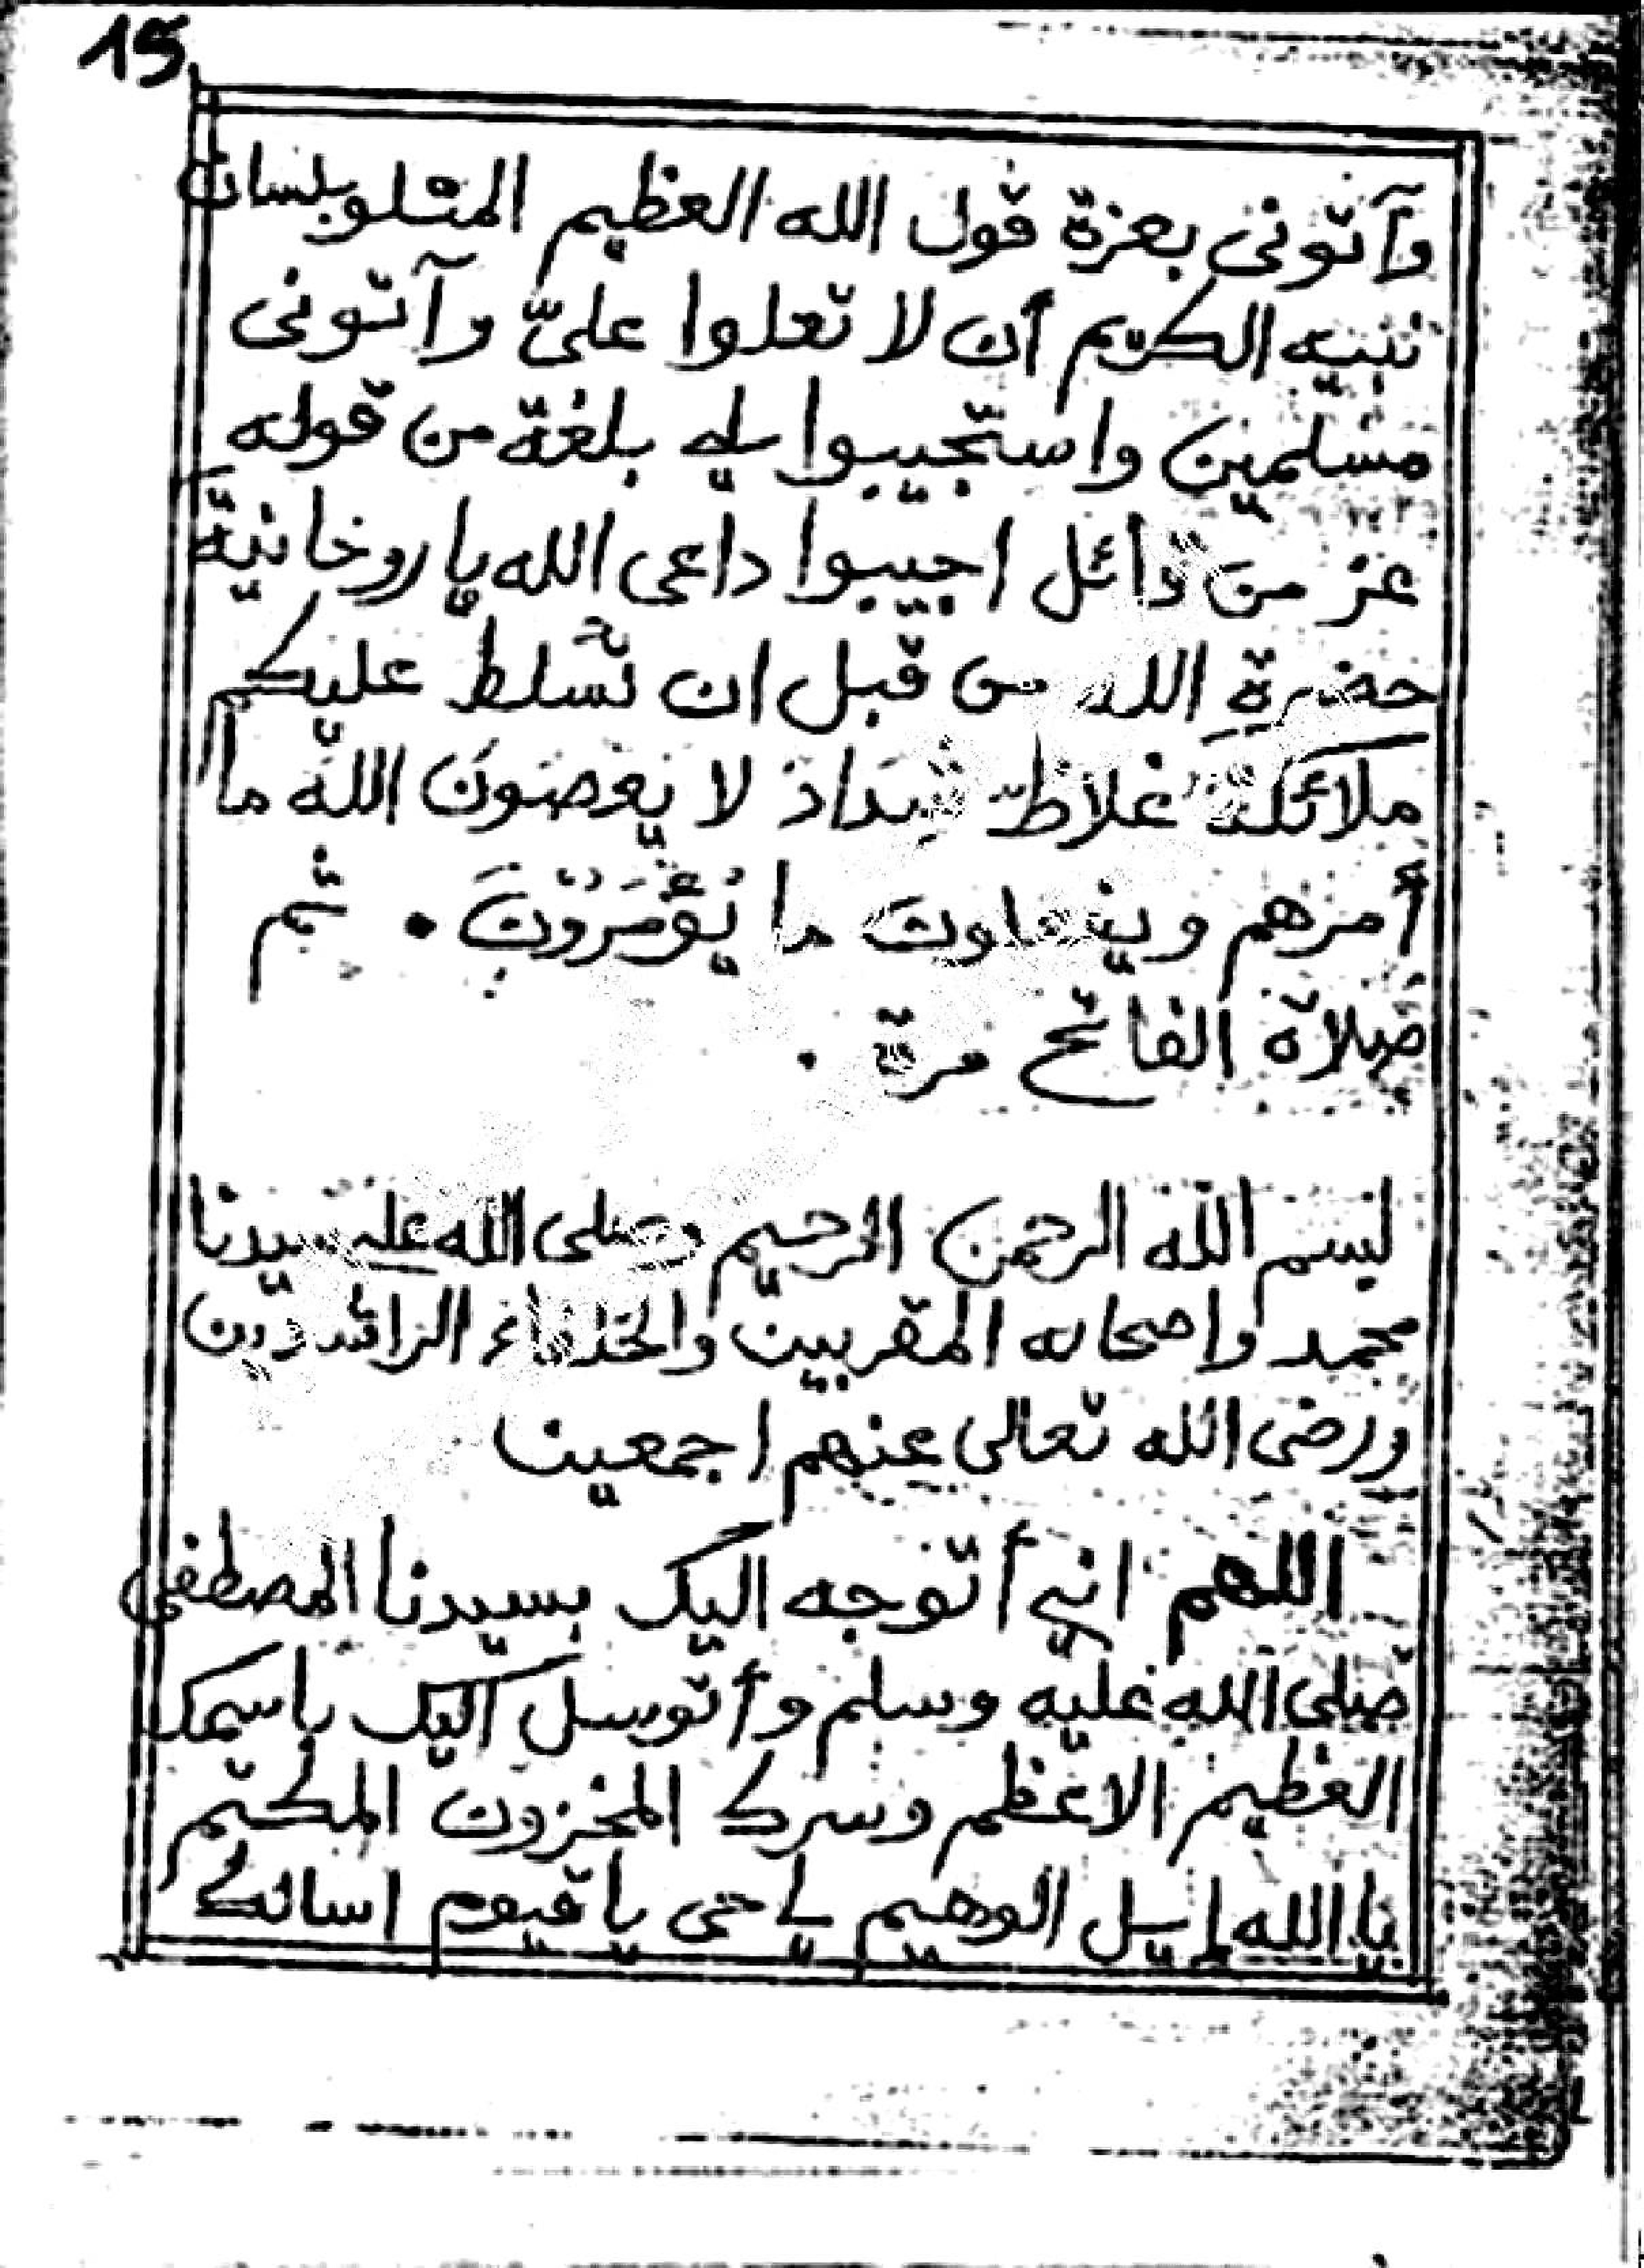 15
وآتونى بعزة قول الله العظيم المتلو بلسان
نبيه الكريم أن لا تعلوا علىّ وآتونى
مسلمين واستجيبوا لي بلغة من قوله
عز من قائل اجيبوا داعى الله يا روحانية
حضرة الله من قبل ان تسلط عليكم
ملائكة غلاظ شداد لا يعصون الله ما
أمرهم ويفعلون ما يؤمرون . ثم
صلاة الفاتح مرة .
بسم الله الرحمن الرحيم وصلى الله على سيدنا
محمد واصحابه المقربين والخلفاء الراشدين
ورضى الله تعالى عنهم اجمعين
اللهم اني أتوجه اليك بسيدنا المصطفى
صلى الله عليه وسلم وأتوسل اليك باسمك
العظيم الاعظم وسرك المخزون المكتم
يا الله ايل الوهيم يا حى يا قيوم اسالك